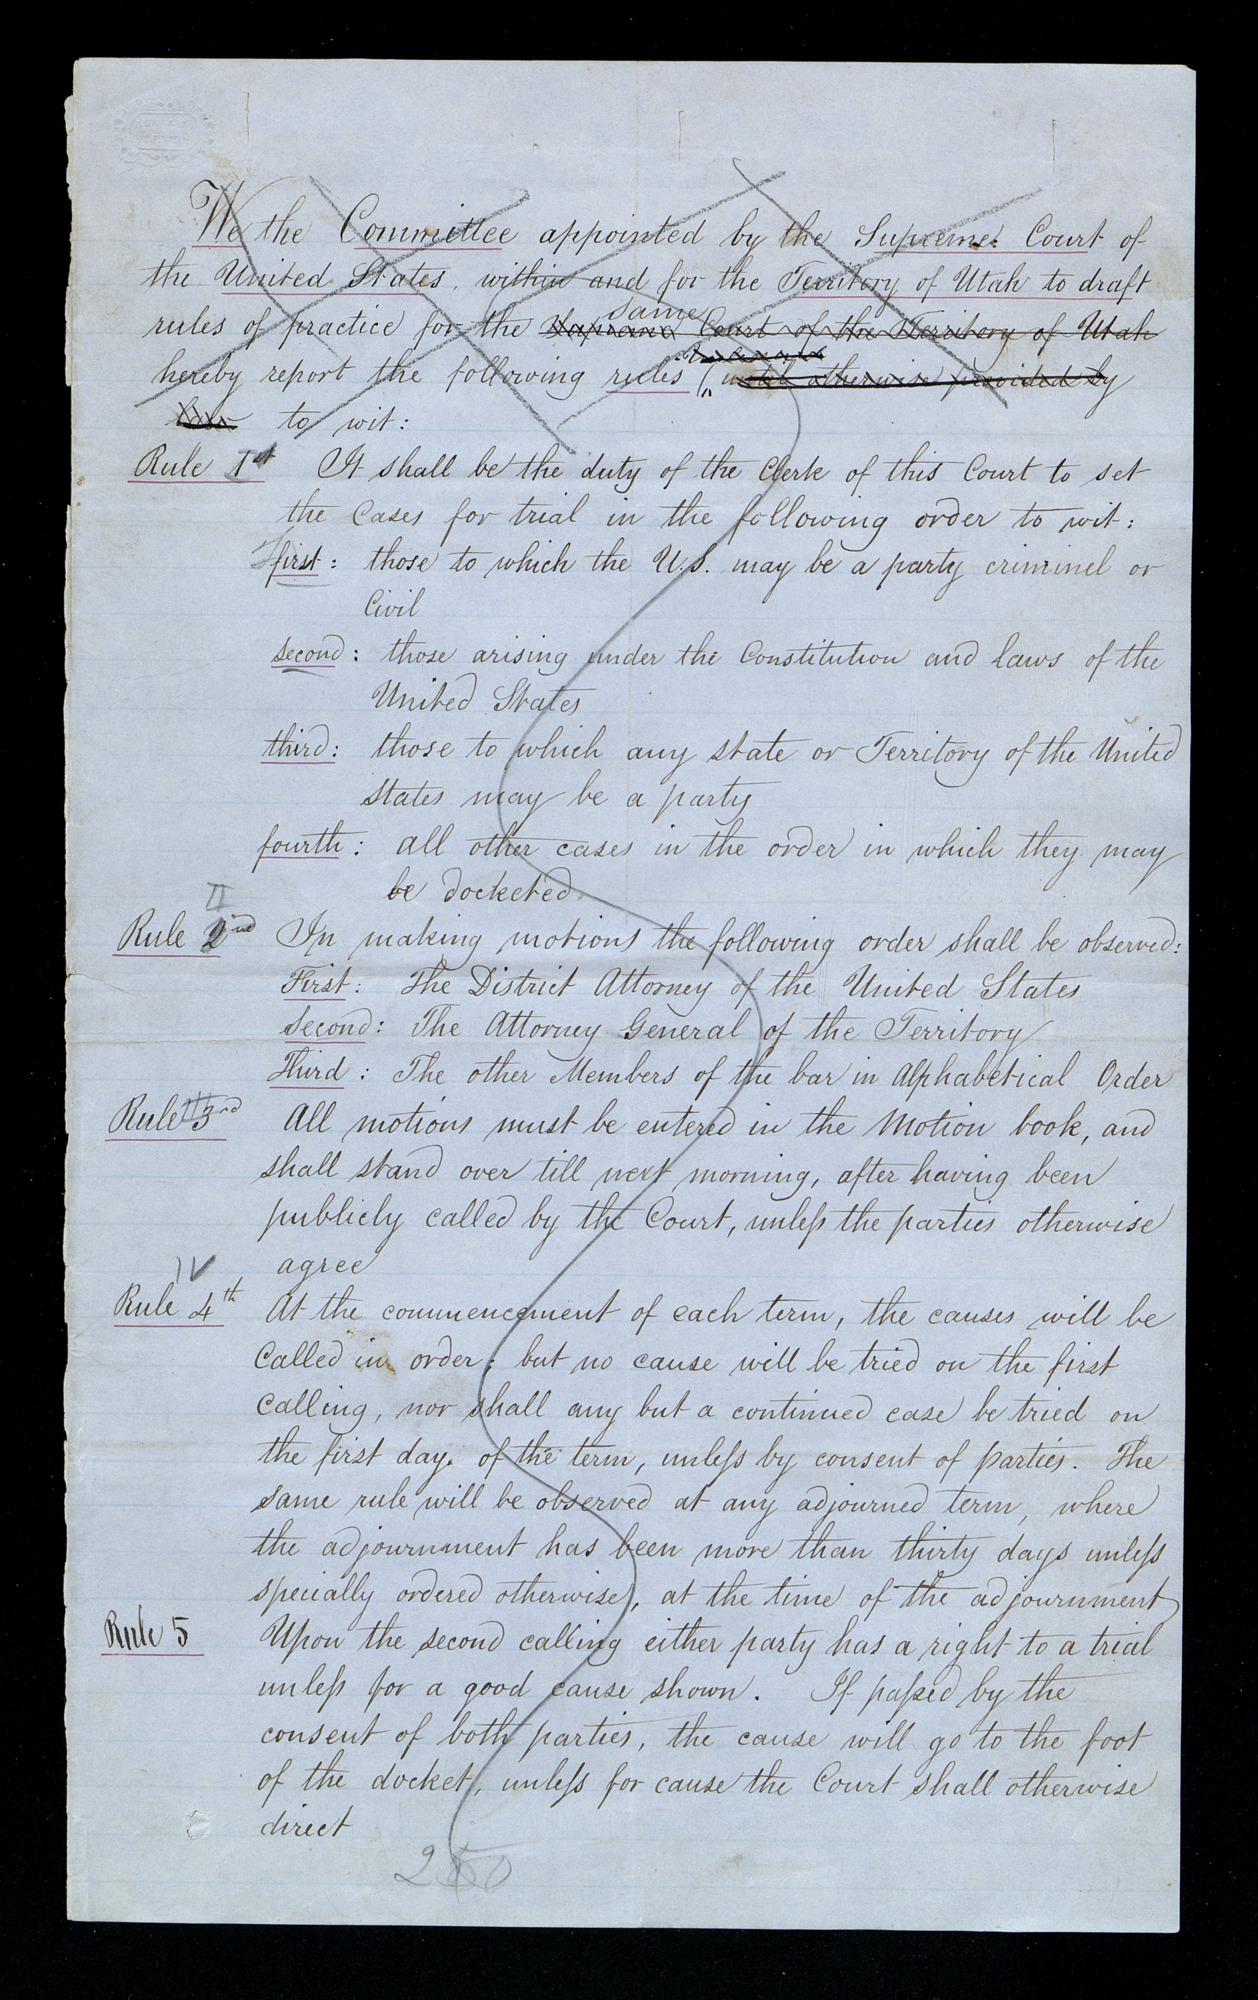 We the Committee appointed by the Supreme Court of
the United States. within and for the Territory of Utah to draft
same
rules of practice for the Supreme Court of the Territory of Utah
hereby report the following rules (until otherwise provided by
to wit:
Rule 1st It shall be the duty of the Clerk of this Court to set
the Cases for trial in the following order to wit:
first: those to which the U.S. may be a party criminel or
Civil
second: those arising under the Constitution and laws of the
United States
third: those to which any state or Territory of the United
states may be a party
fourth: all other cases in the order in which they may
be docketed.
II
Rule 2nd In making motions the following order shall be observed:
First: The District Attorney of the United States
Second: The Attorney General of the Territory
Third: The other Members of the bar in Alphabetical Order
III
Rule 3rd All motions must be entered in the Motion book, and
shall stand over till next morning, after having been
publicly called by the Court, unless the parties otherwise
agree
IV
Rule 4th At the commencement of each term, the causes will be
Called in order; but no cause will be tried on the first
Calling, nor shall any but a continued case be tried on
the first day. of the term, unless by consent of parties. The
same rule will be observed at any adjourned term, where
the adjournment has been more than thirty days unless
specially ordered otherwise, at the time of the adjournment
Rule 5 Upon the second calling either party has a right to a trial
unless for a good cause shown. If passed by the
consent of both parties, the cause will go to the foot
of the docket, unless for cause the Court shall otherwise
direct
250